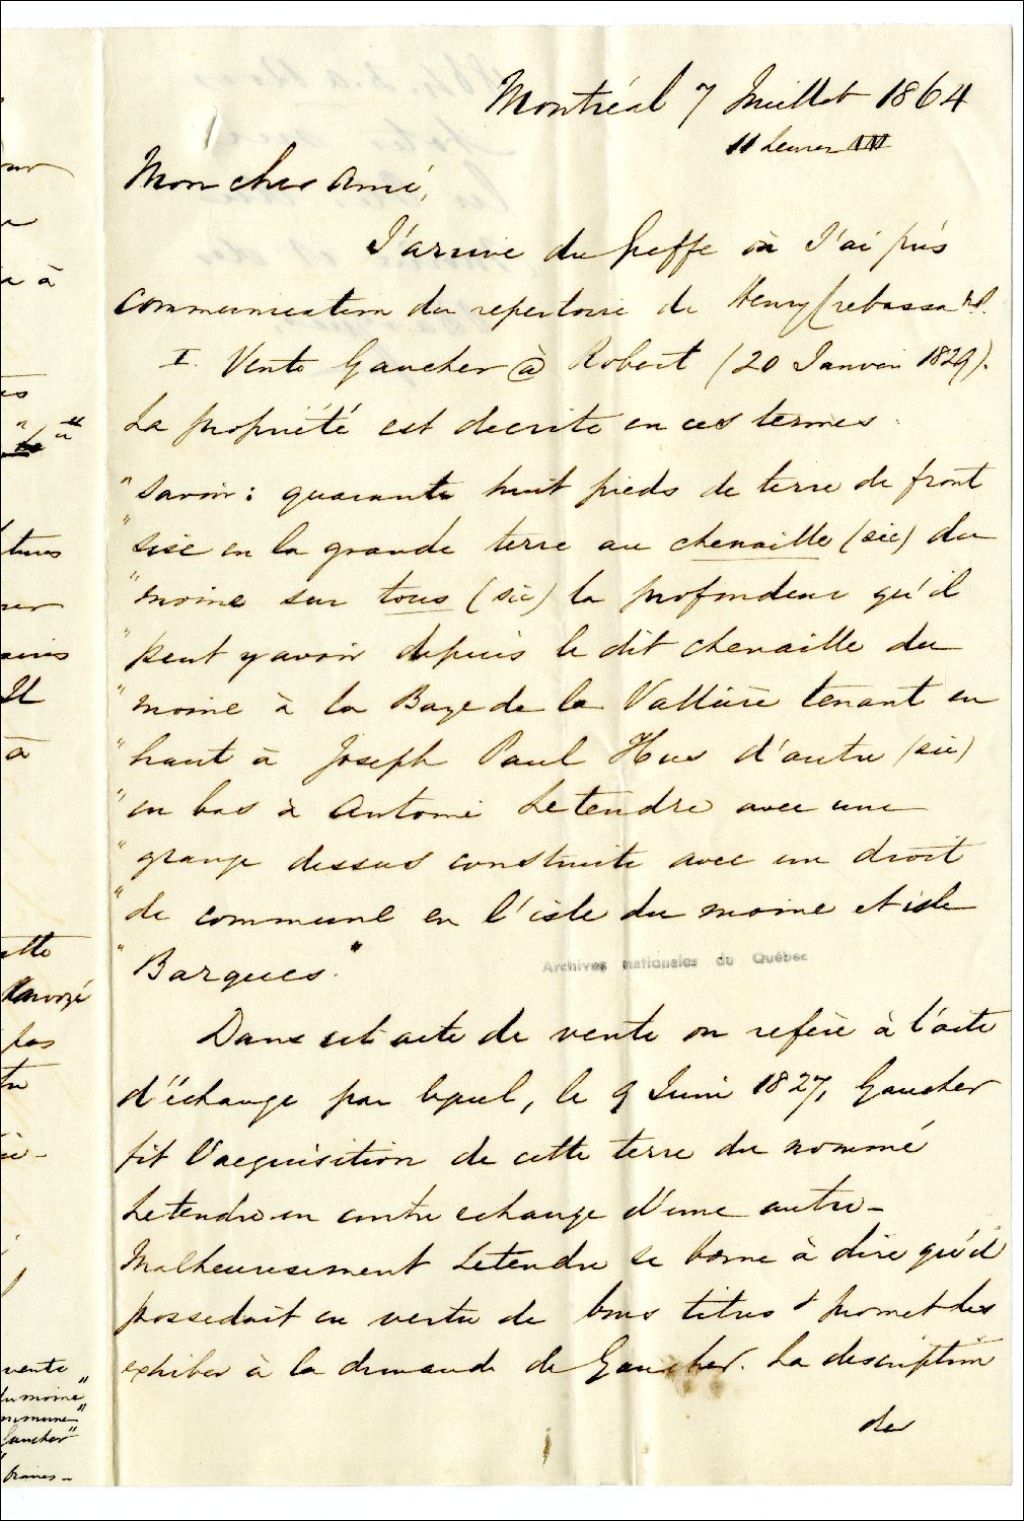 Montréal 7 Juillet 1864
11 heures AM
Mon cher Amé,
J'arrive du Greffe où J'ai pris
communication du repertoire de Henry Crebassa
I. Vente Gaucher @ Robert (20 Janvier 1829).
La propriété est decrite en ces termes :
"savoir : quarante huit pieds de terre de front
"sise en la grande terre au chenaille (sic) du
"moine sur tous (sic) la profondeur qu'il
"peut y avoir depuis le dit chenaille du
"moine à la Baye de la Vallière tenant en
"haut à Joseph Paul Hus d'autre (sic)
"en bas à Antoine Letendre avec une
"grange dessus construite avec un droit
"de commune en l'isle du moine et isle
"Barques."
Archives nationales du Québec
Dans cet acte de vente on refère à l'acte
d'échange par lequel, le 9 Juin 1827, Gaucher
fit l'acquisition de cette terre du nommé
Letendre en contre echange d'une autre -
Malheureusement Letendre se borne à dire qu'il
possedait en vertu de bons titres & promet les
exhiber à la demande de Gaucher. La description
de
à
à
vente
du moine"
commune"
Gaucher"